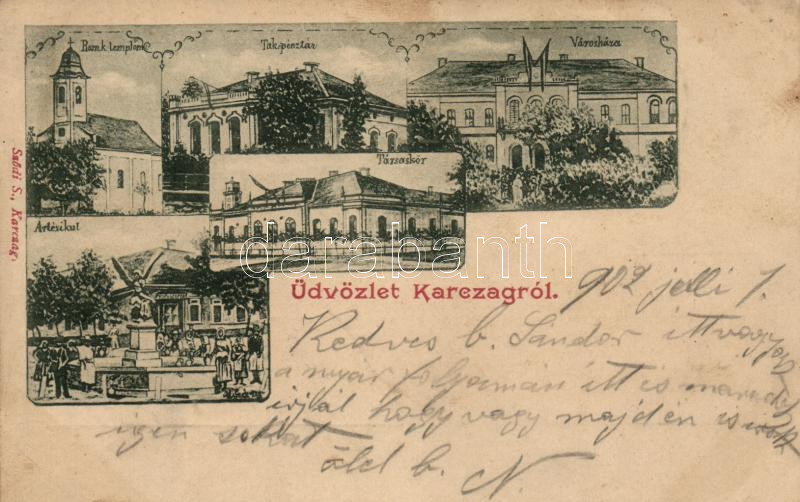 Romk. templom
Tak. pénztár
Városháza
Társaskör
Artézikut
Sződi S., Karczag.
darabanth
Üdvözlet Karczagról.
902 julli 7.
Kedves b. Sándor itt vagyok
a nyár folyamán itt is maradok
irjál hogy vagy majd én is irok
igen sokat
ölel b. N.